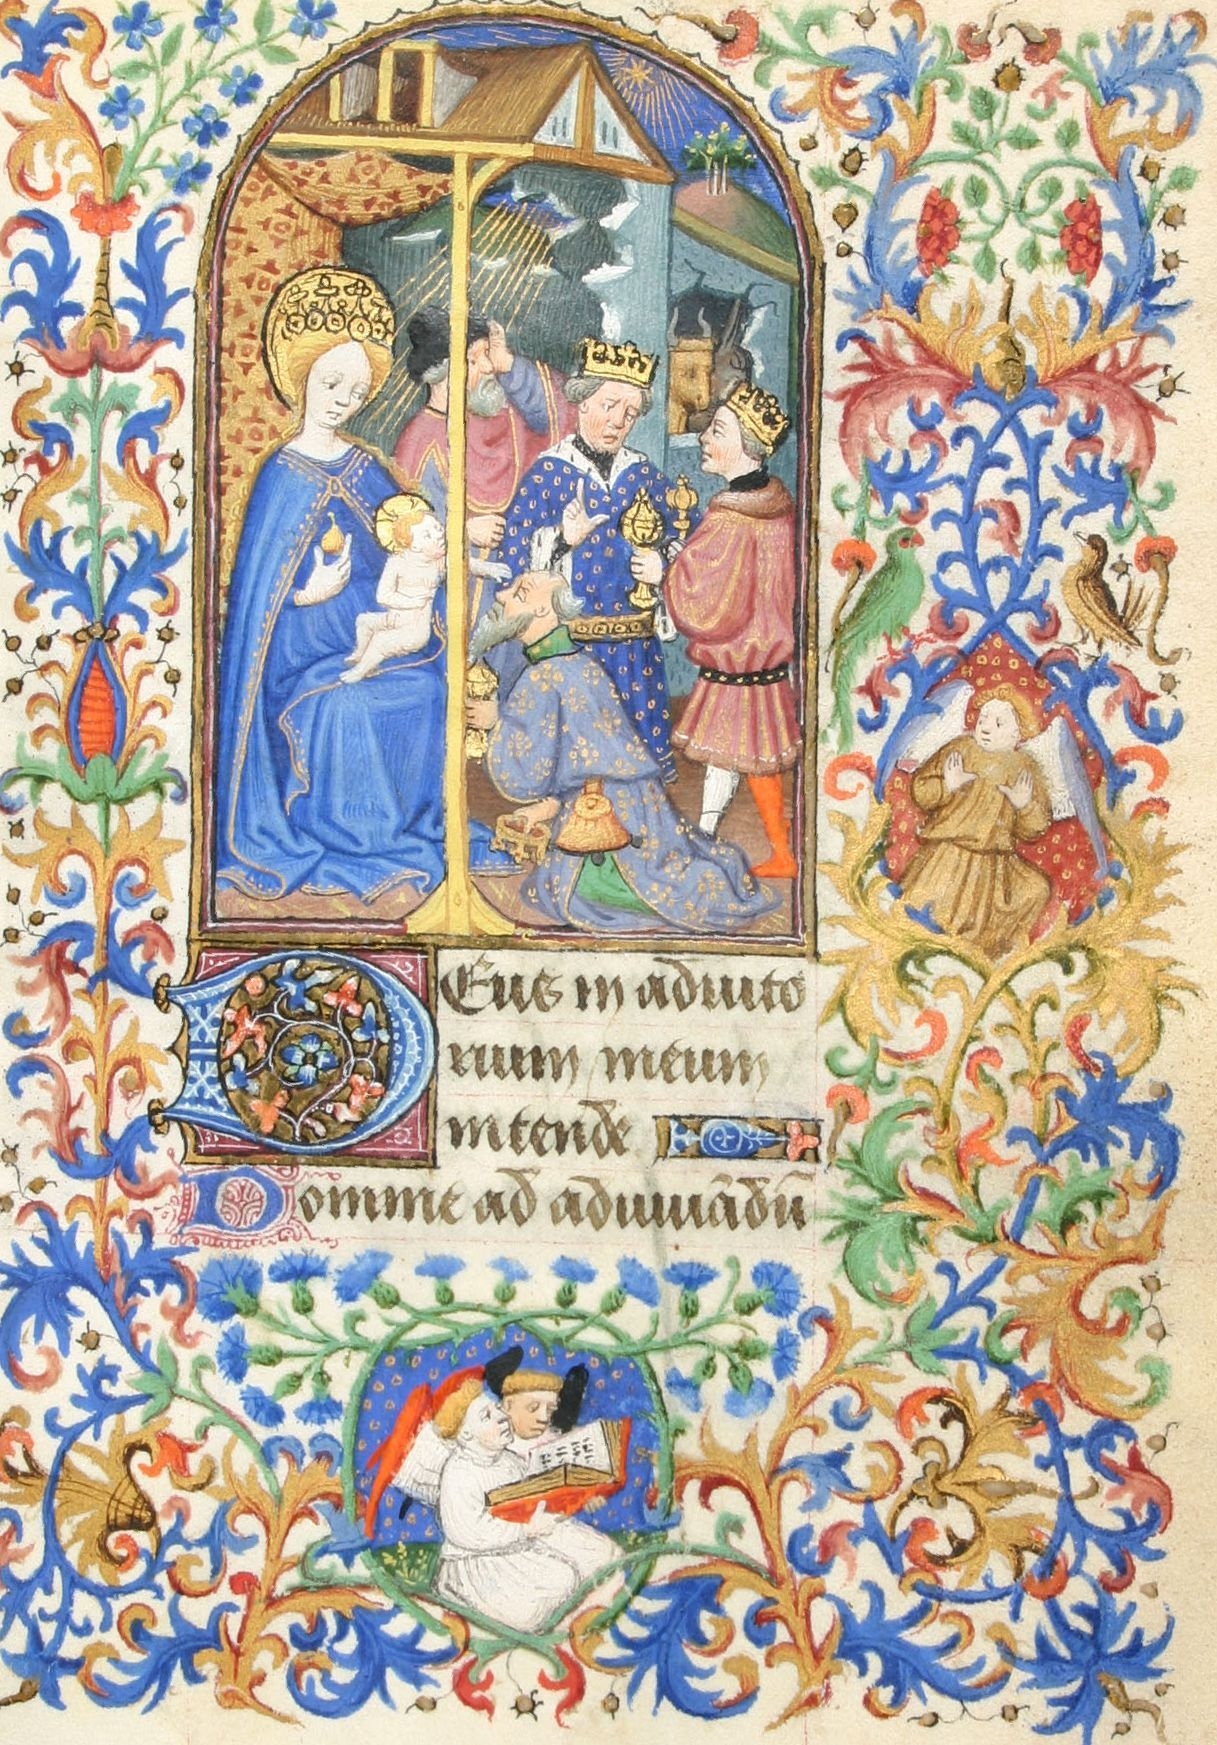 Deus in adiuto
rium meum
intende
Domine ad adiuuãdũ